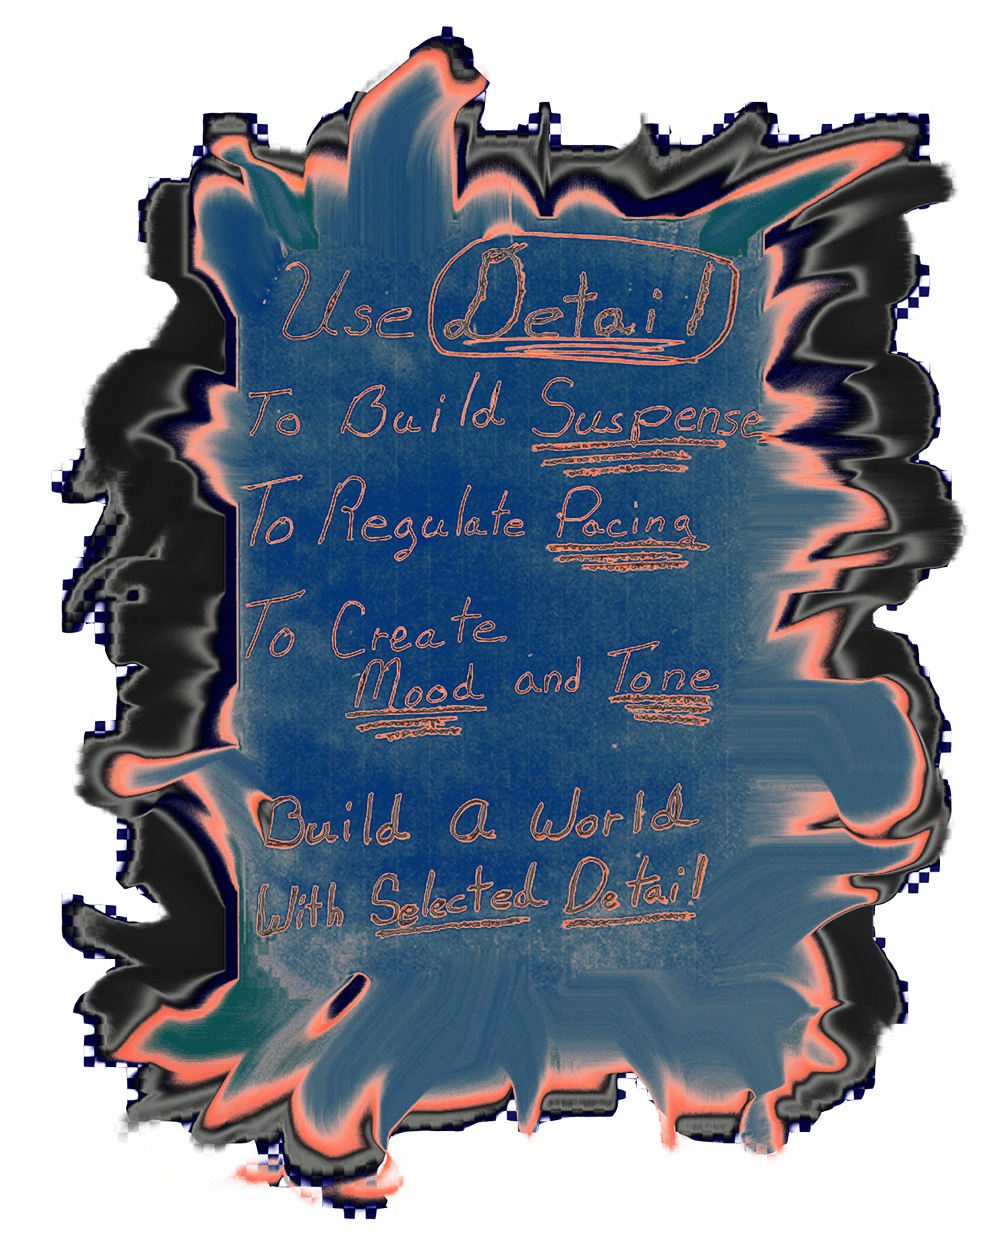 Use Detail
To Build Suspense
To Regulate Pacing
To Create
Mood and Tone
Build A World
With Selected Detail